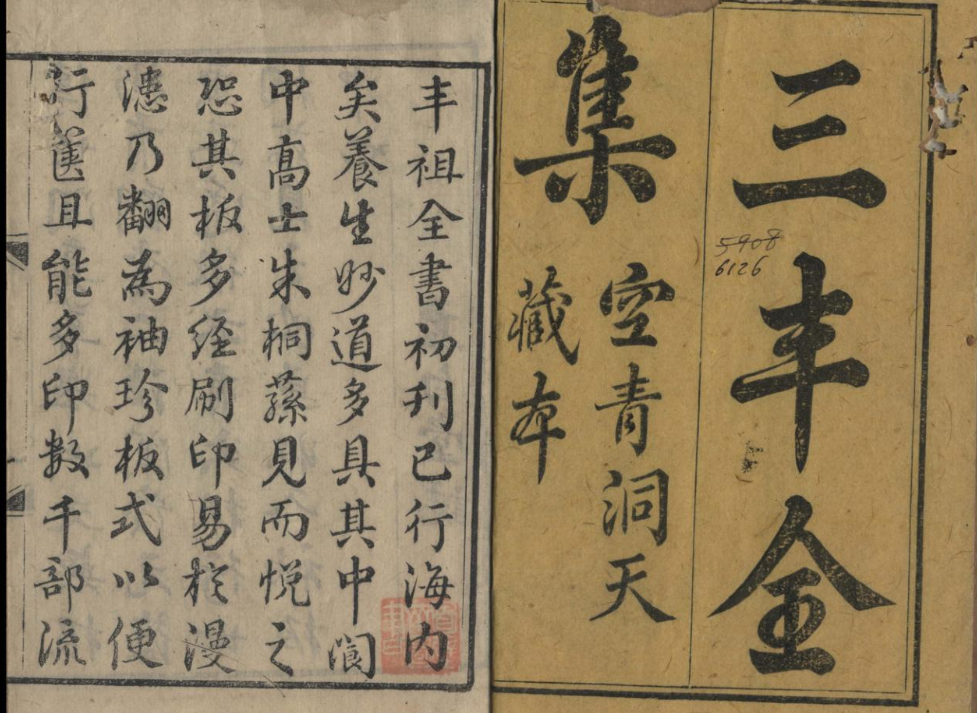 三丰全
集
空青洞天
藏本
5908
6126
丰祖全書初刊已行海内
矣養生妙道多具其中閬
中高士朱桐蓀見而悅之
恐其板多經刷印易於漫
漶乃翻為袖珍板式以便
行匧且能多印數千部流